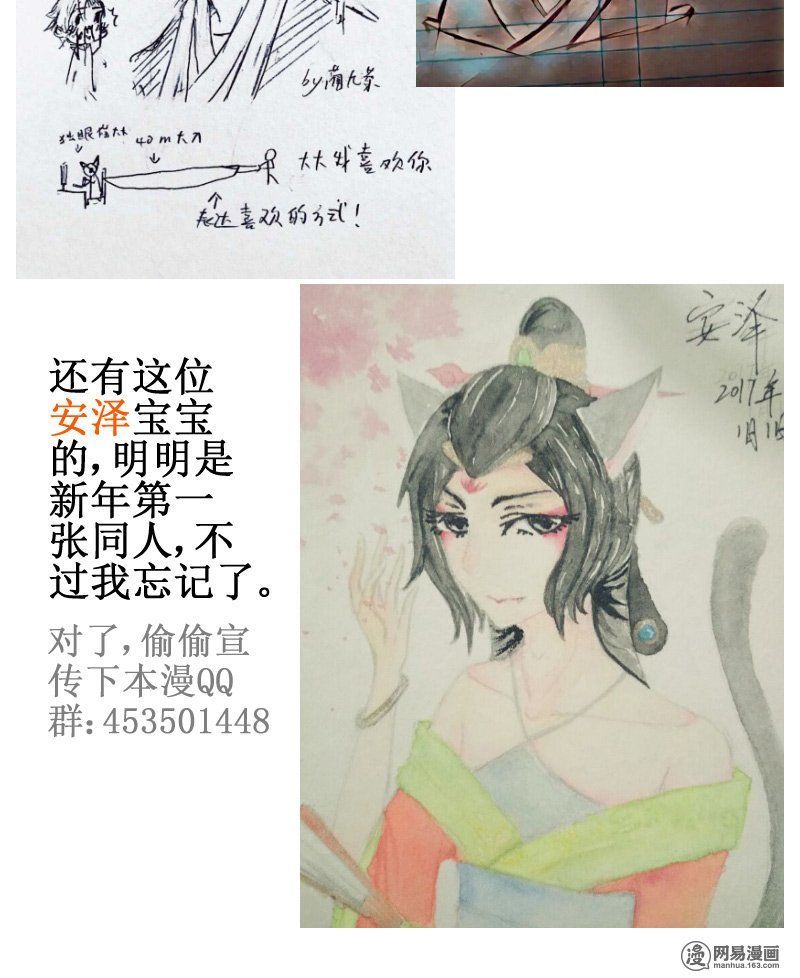 by萌九条
独眼怪大大
40m大刀
大大我喜欢你
表达喜欢的方式！
安泽
2017年
1月1日
还有这位
安泽宝宝
的，明明是
新年第一
张同人，不
过我忘记了。
对了，偷偷宣
传下本漫QQ
群：453501448
漫 网易漫画
manhua.163.com